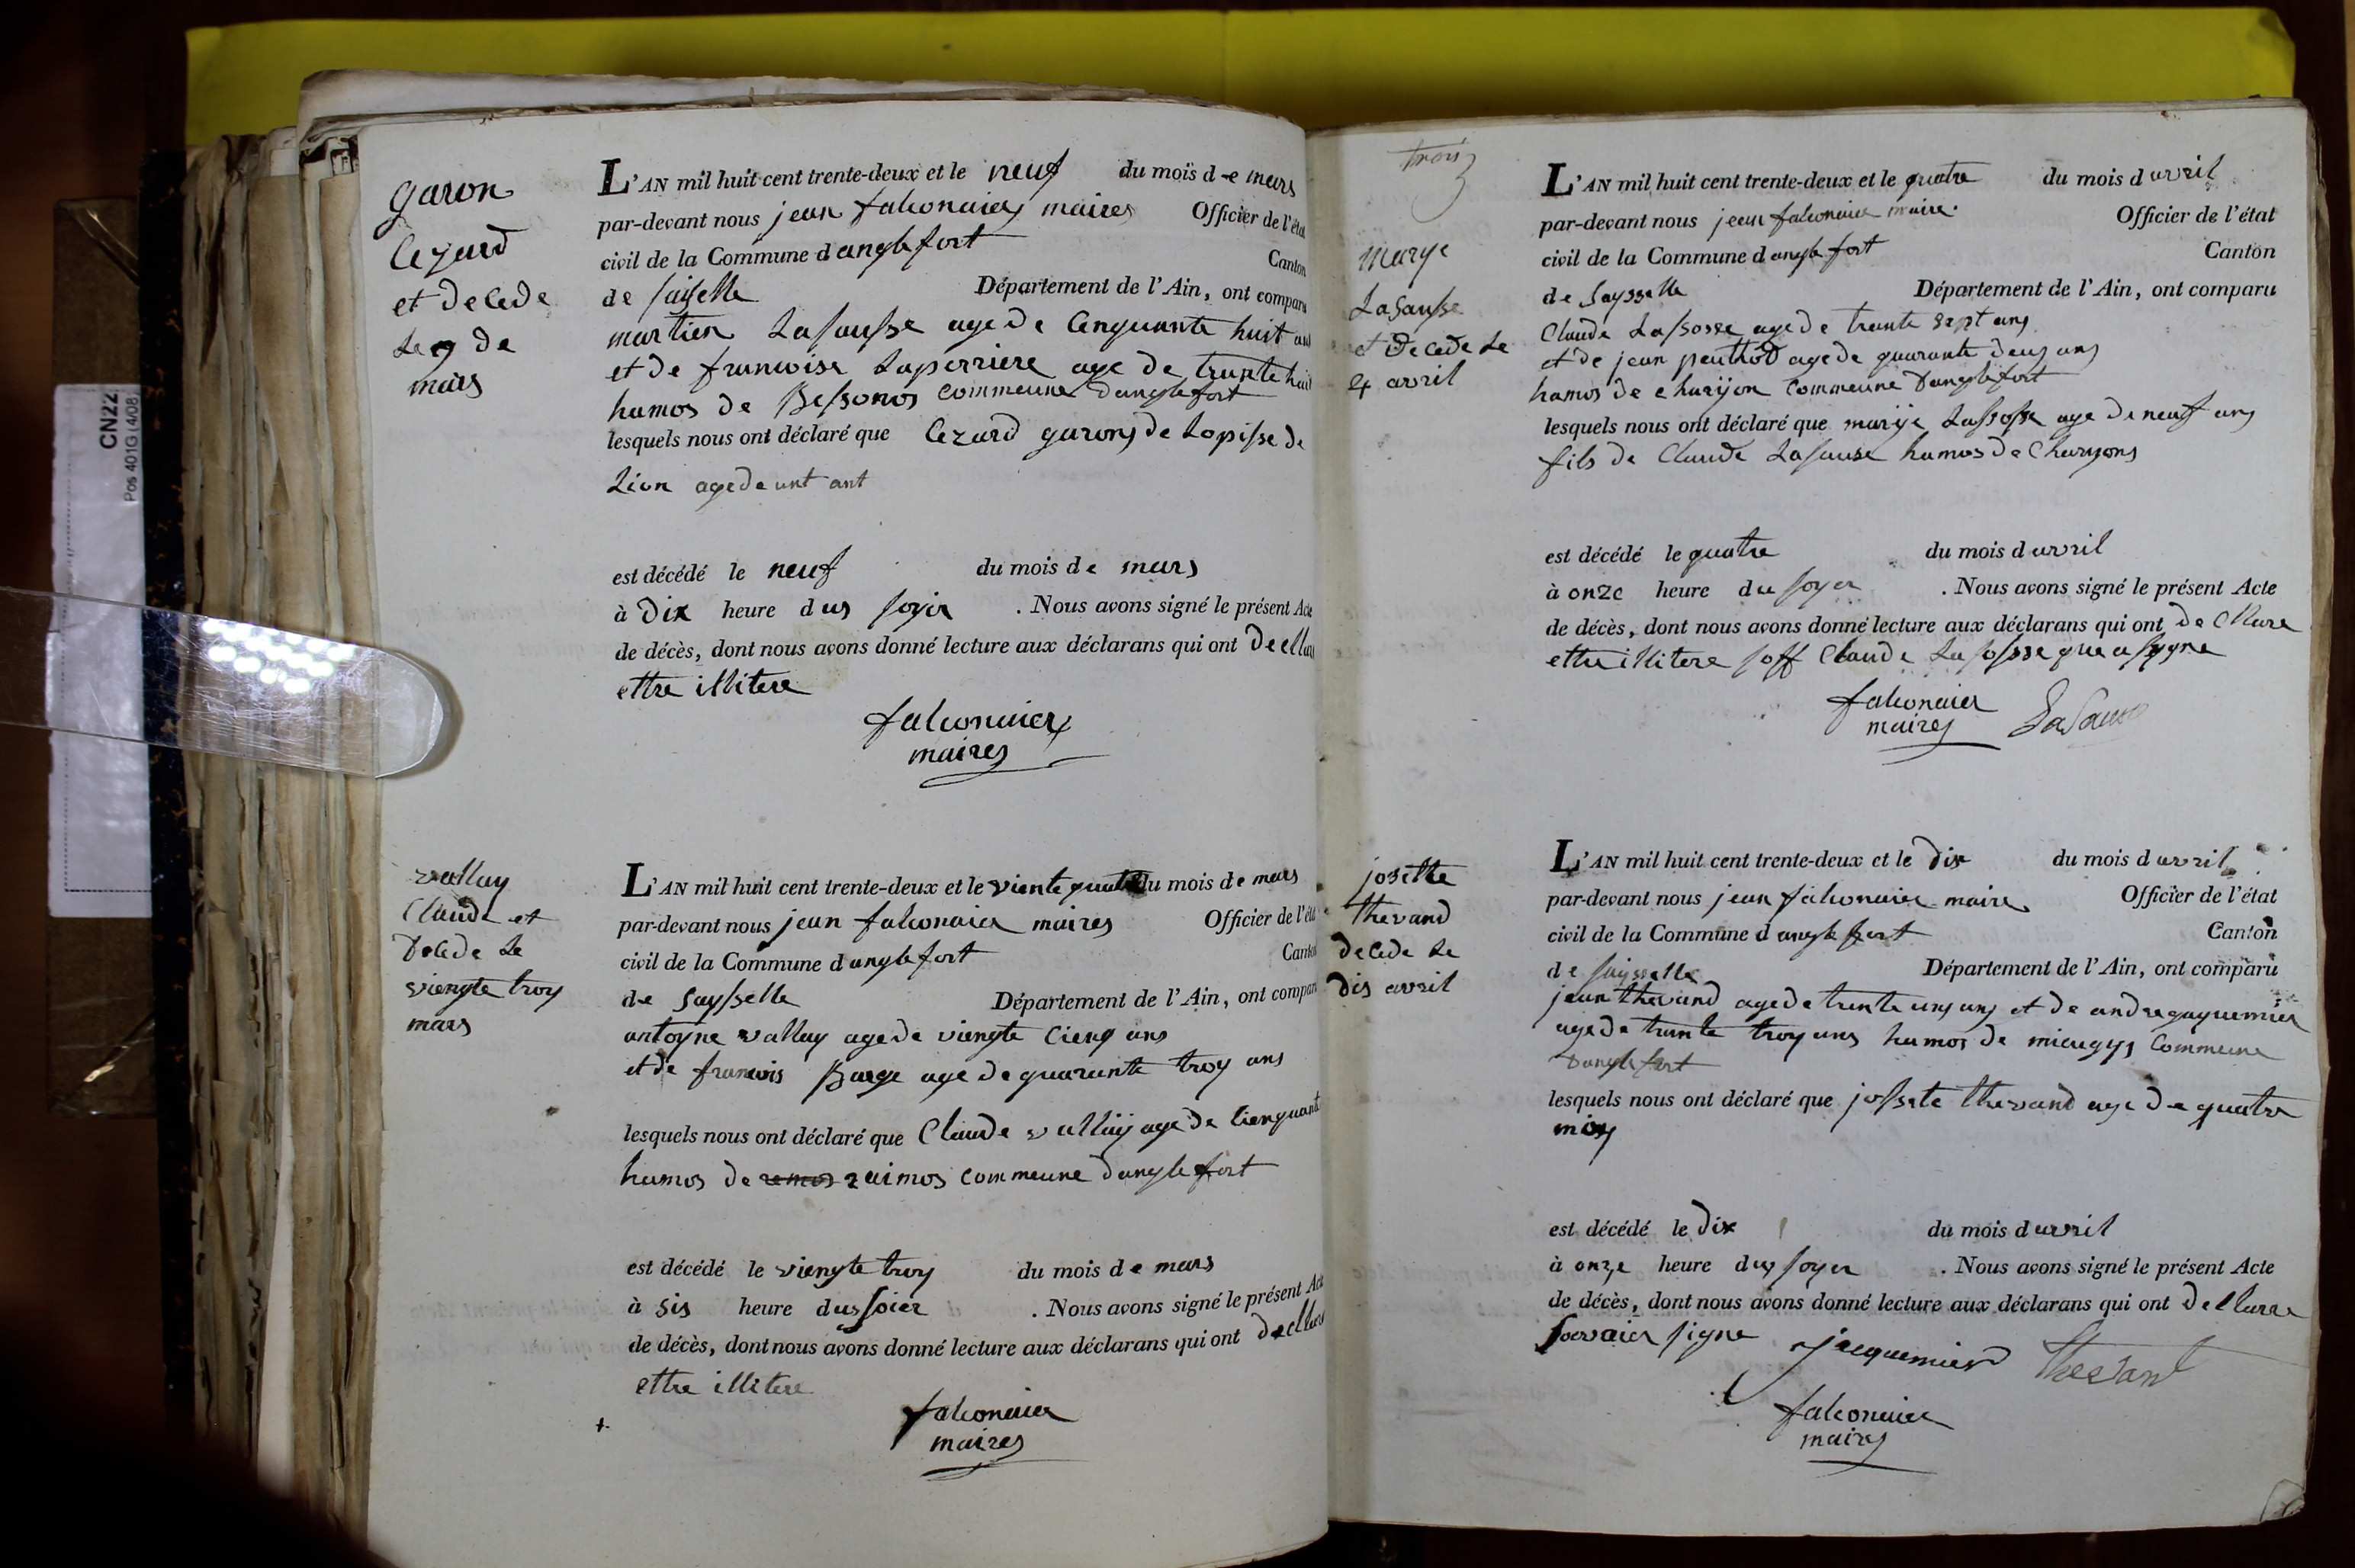 garon
Cezard
et decede
Le 9 de
mars
L'AN mil huit cent trente-deux et le neuf du mois d e mars
par-devant nous jean falconaier maires Officier de l'état
civil de la Commune d anglefort Canton
de saiselle Département de l'Ain, ont comparu
martien Lasausse age de cenquante huit ans
et de francoise Laperriere age de trante huit
hamos de Bessonos commeune danglefort
lesquels nous ont déclaré que Cezard garons de Lopisse de
Lion age de unt ant
est décédé le neuf du mois d e mars
à dix heure dus soyir . Nous avons signé le présent Acte
de décès, dont nous avons donné lecture aux déclarans qui ont decllar
ettre illitere
falconaier
maires
vallay
Claude et
Decede Le
viengte troy
mars
L'AN mil huit cent trente-deux et le viente quatre du mois d e mars
par-devant nous jean falconaier maires Officier de l'état
civil de la Commune d anglefort Canton
de saysselle Département de l'Ain, ont comparu
antoyne vallay age de viengte cienq ans
et de francois Barge age de quarante troy ans
lesquels nous ont déclaré que Claude vallaij age de cienquant
hamos de remos raimos commeune danglefort
est décédé le viengte troy du mois d e mars
à sis heure dus soier . Nous avons signé le présent Acte
de décès, dont nous avons donné lecture aux déclarans qui ont decllare
ettre illitere
falconaier
maires
trois
Marye
Lasausse
et decede Le
4 avril
L'AN mil huit cent trente-deux et le quatre du mois d avril
par-devant nous jean falconaier maire Officier de l'état
civil de la Commune d anglefort Canton
de saysselle Département de l'Ain, ont comparu
Claude Lassosse age de trante sept ans
et de jean peuthod age de quarante deus ans
hamos de charijon commeune danglefort
lesquels nous ont déclaré que marije Lassosse age de neuf ans
fils de Claude Lasause hamos de Charyons
est décédé le quatre du mois d avril
à onze heure du soyer . Nous avons signé le présent Acte
de décès, dont nous avons donné lecture aux déclarans qui ont de cllare
ettre illitere soff Claude Lasosse que a sygne
falconaier
maires Lasausse
josette
thevand
decede Le
dis avril
L'AN mil huit cent trente-deux et le dix du mois d avril
par-devant nous jean falconaier maire Officier de l'état
civil de la Commune d anglefort Canton
de saysselle Département de l'Ain, ont comparu
jean thevand age de trente uns ans et de andre gaquemier
age de trante troy ans hamos de mieugys Commeune
danglefort
lesquels nous ont déclaré que jossete thevand age de quatre
moy
est décédé le dix du mois d avril
à onze heure dus soyer . Nous avons signé le présent Acte
de décès, dont nous avons donné lecture aux déclarans qui ont decllarre
soevaier signe jacquemierd thevand
falconaier
maires
CN22
Pos 401G (4/08)